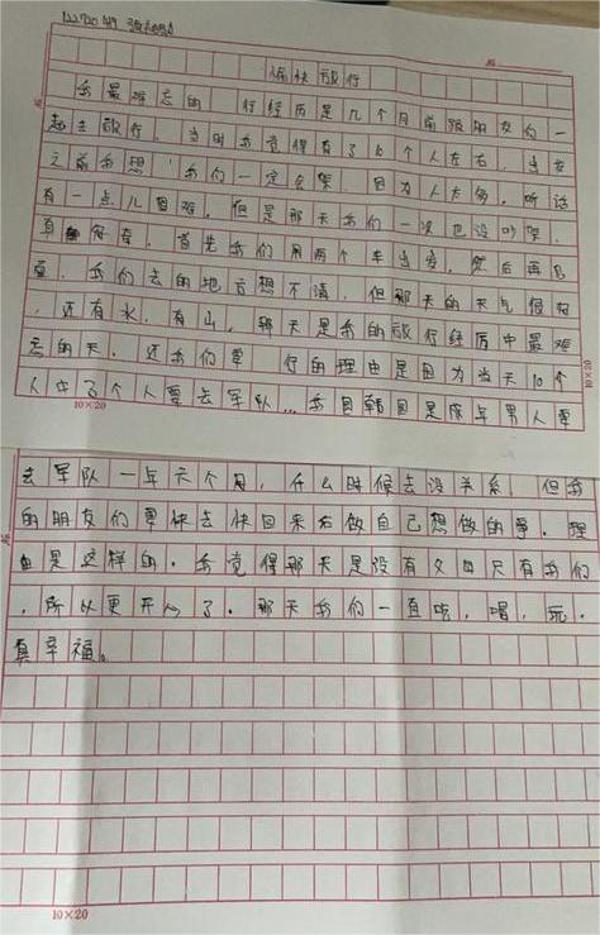 愉快旅行
我最难忘的 行经历是几个月前跟朋友们一
起去旅行。当时我觉得有了10个人左右。当发
之前我想，我们一定会架，因为人太多，听话
有一点儿困难。但是那天我们一次也没吵架。
真奇。首先我们用两个车出发，然后再
，我们去的地方想不清，但那天的天气很好
，还有水，有山，那天是我的旅行经历中最难
忘的天。还我们要 行的理由是因为当天10个
人中了个人要去军队...我国韩国是成年男人要
10×20
10×20
去军队一年六个月，什么时候去没关系，但我
的朋友们要快去快回来后做自己想做的事。理
由是这样的。我觉得那天是没有父母只有我们
，所以更开心了。那天我们一直吃，唱，玩。
真幸福。
10×20